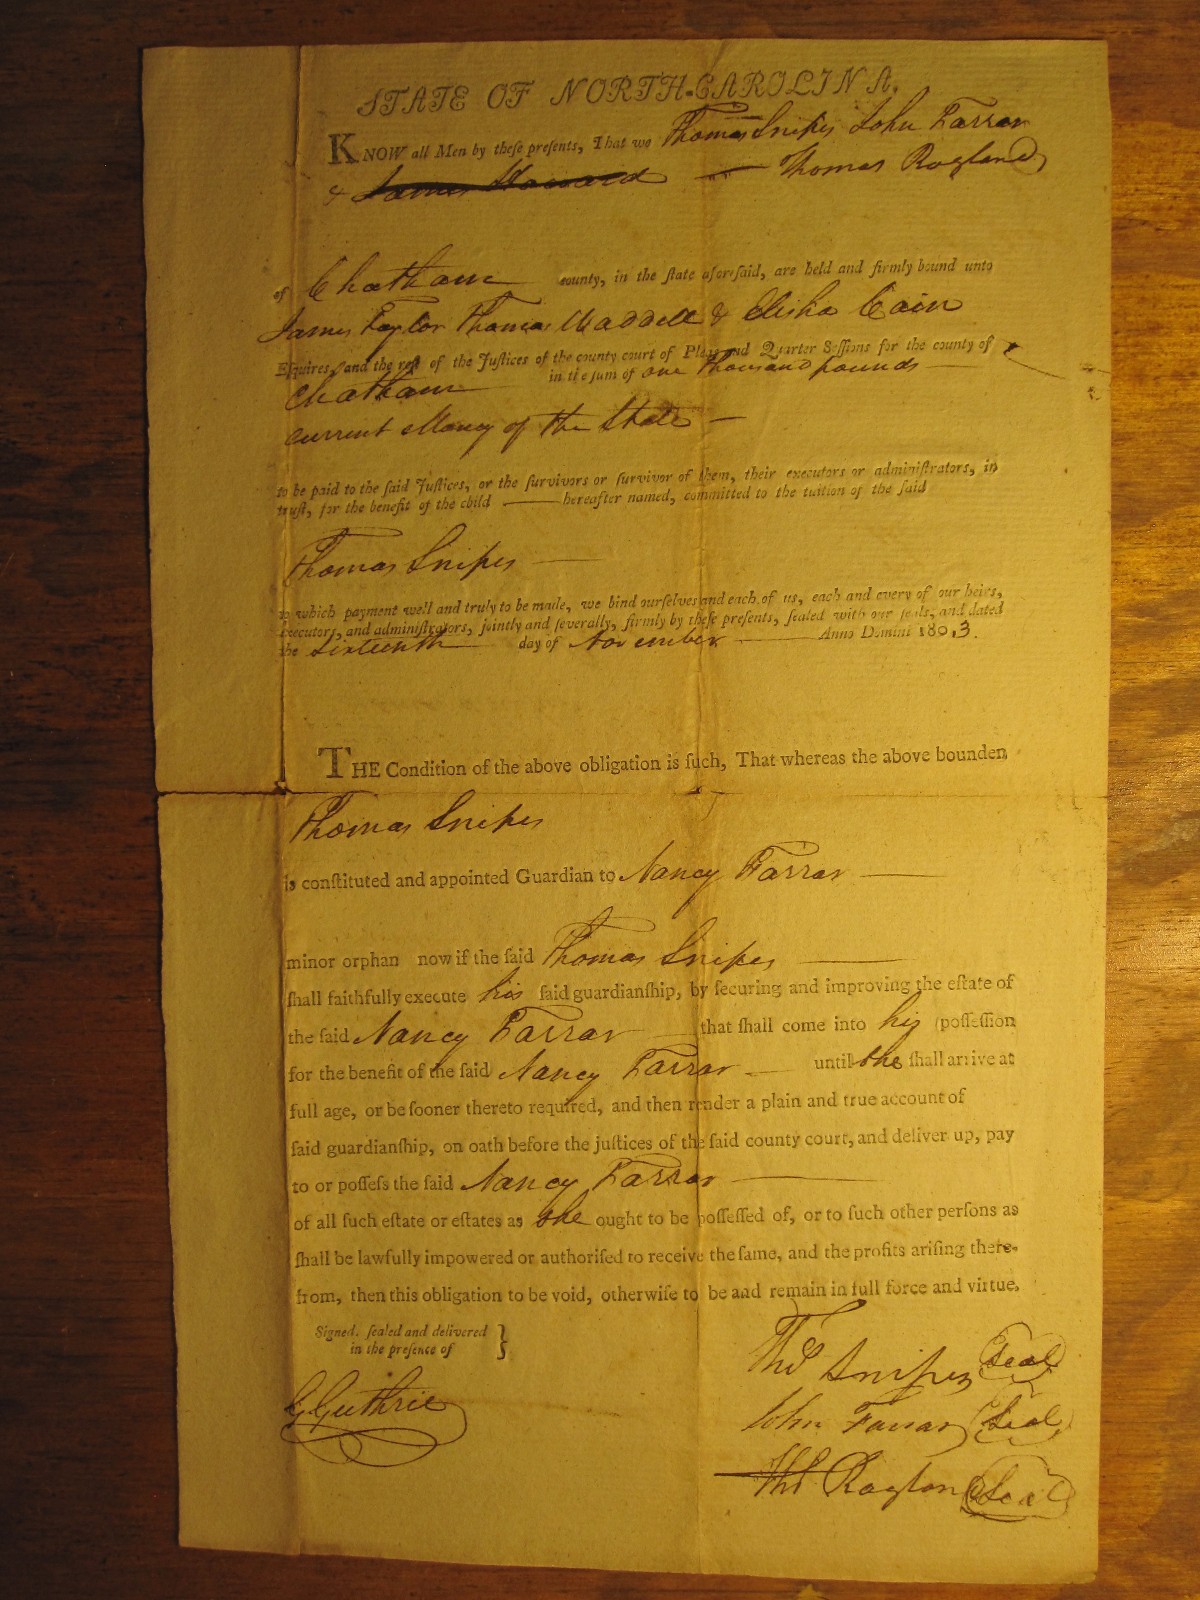 STATE OF NORTH-CAROLINA.
KNOW all Men by theſe preſents, That we Thomas Snipes John Farrar
& James Howard — Thomas Ragland
of Chatham county, in the ſtate aforeſaid, are held and firmly bound unto
James Taylor Thomas Waddell & Elisha Cain
Eſquires, and the reſt of the Juſtices of the county court of Pleas and Quarter Seſſions for the county of
Chatham in the ſum of one thousand pounds —
current Money of the State —
to be paid to the ſaid Juſtices, or the ſurvivors or ſurvivor of them, their executors or adminiſtrators, in
truſt, for the benefit of the child — hereafter named, committed to the tuition of the ſaid
Thomas Snipes —
to which payment well and truly to be made, we bind ourſelves and each of us, each and every of our heirs,
executors, and adminiſtrators, jointly and ſeverally, firmly by theſe preſents, ſealed with our ſeals, and dated
the Sixteenth day of November — Anno Domini 1803.
THE Condition of the above obligation is ſuch, That whereas the above bounden
Thomas Snipes
is conſtituted and appointed Guardian to Nancy Farrar —
minor orphan now if the ſaid Thomas Snipes —
ſhall faithfully execute his ſaid guardianſhip, by ſecuring and improving the eſtate of
the ſaid Nancy Farrar — that ſhall come into his poſſeſſion
for the benefit of the ſaid Nancy Farrar — until she ſhall arrive at
full age, or be ſooner thereto required, and then render a plain and true account of
ſaid guardianſhip, on oath before the juſtices of the ſaid county court, and deliver up, pay
to or poſſeſs the ſaid Nancy Farrar —
of all ſuch eſtate or eſtates as she ought to be poſſeſſed of, or to ſuch other perſons as
ſhall be lawfully impowered or authoriſed to receive the ſame, and the profits ariſing there-
from, then this obligation to be void, otherwiſe to be and remain in full force and virtue.
Signed, ſealed and delivered
in the preſence of }
G Guthrie
Thos Snipes Seal
John Farrar Seal
Thos Ragland Seal